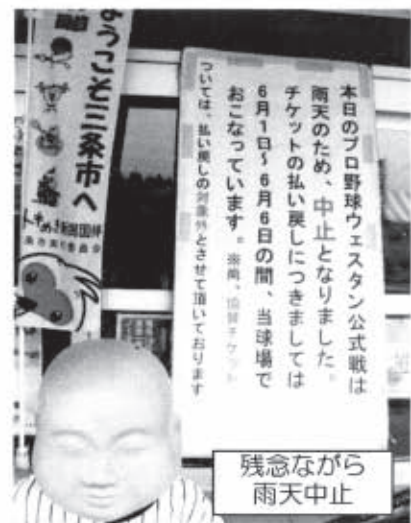 ようこそ三条市へ
本日のプロ野球ウェスタン公式戦は
雨天のため、中止となりました。
チケットの払い戻しにつきましては
6月1日~6月6日の間、当球場で
おこなっています。
ついては、払い戻しの対象外とさせて頂いております
残念ながら
雨天中止